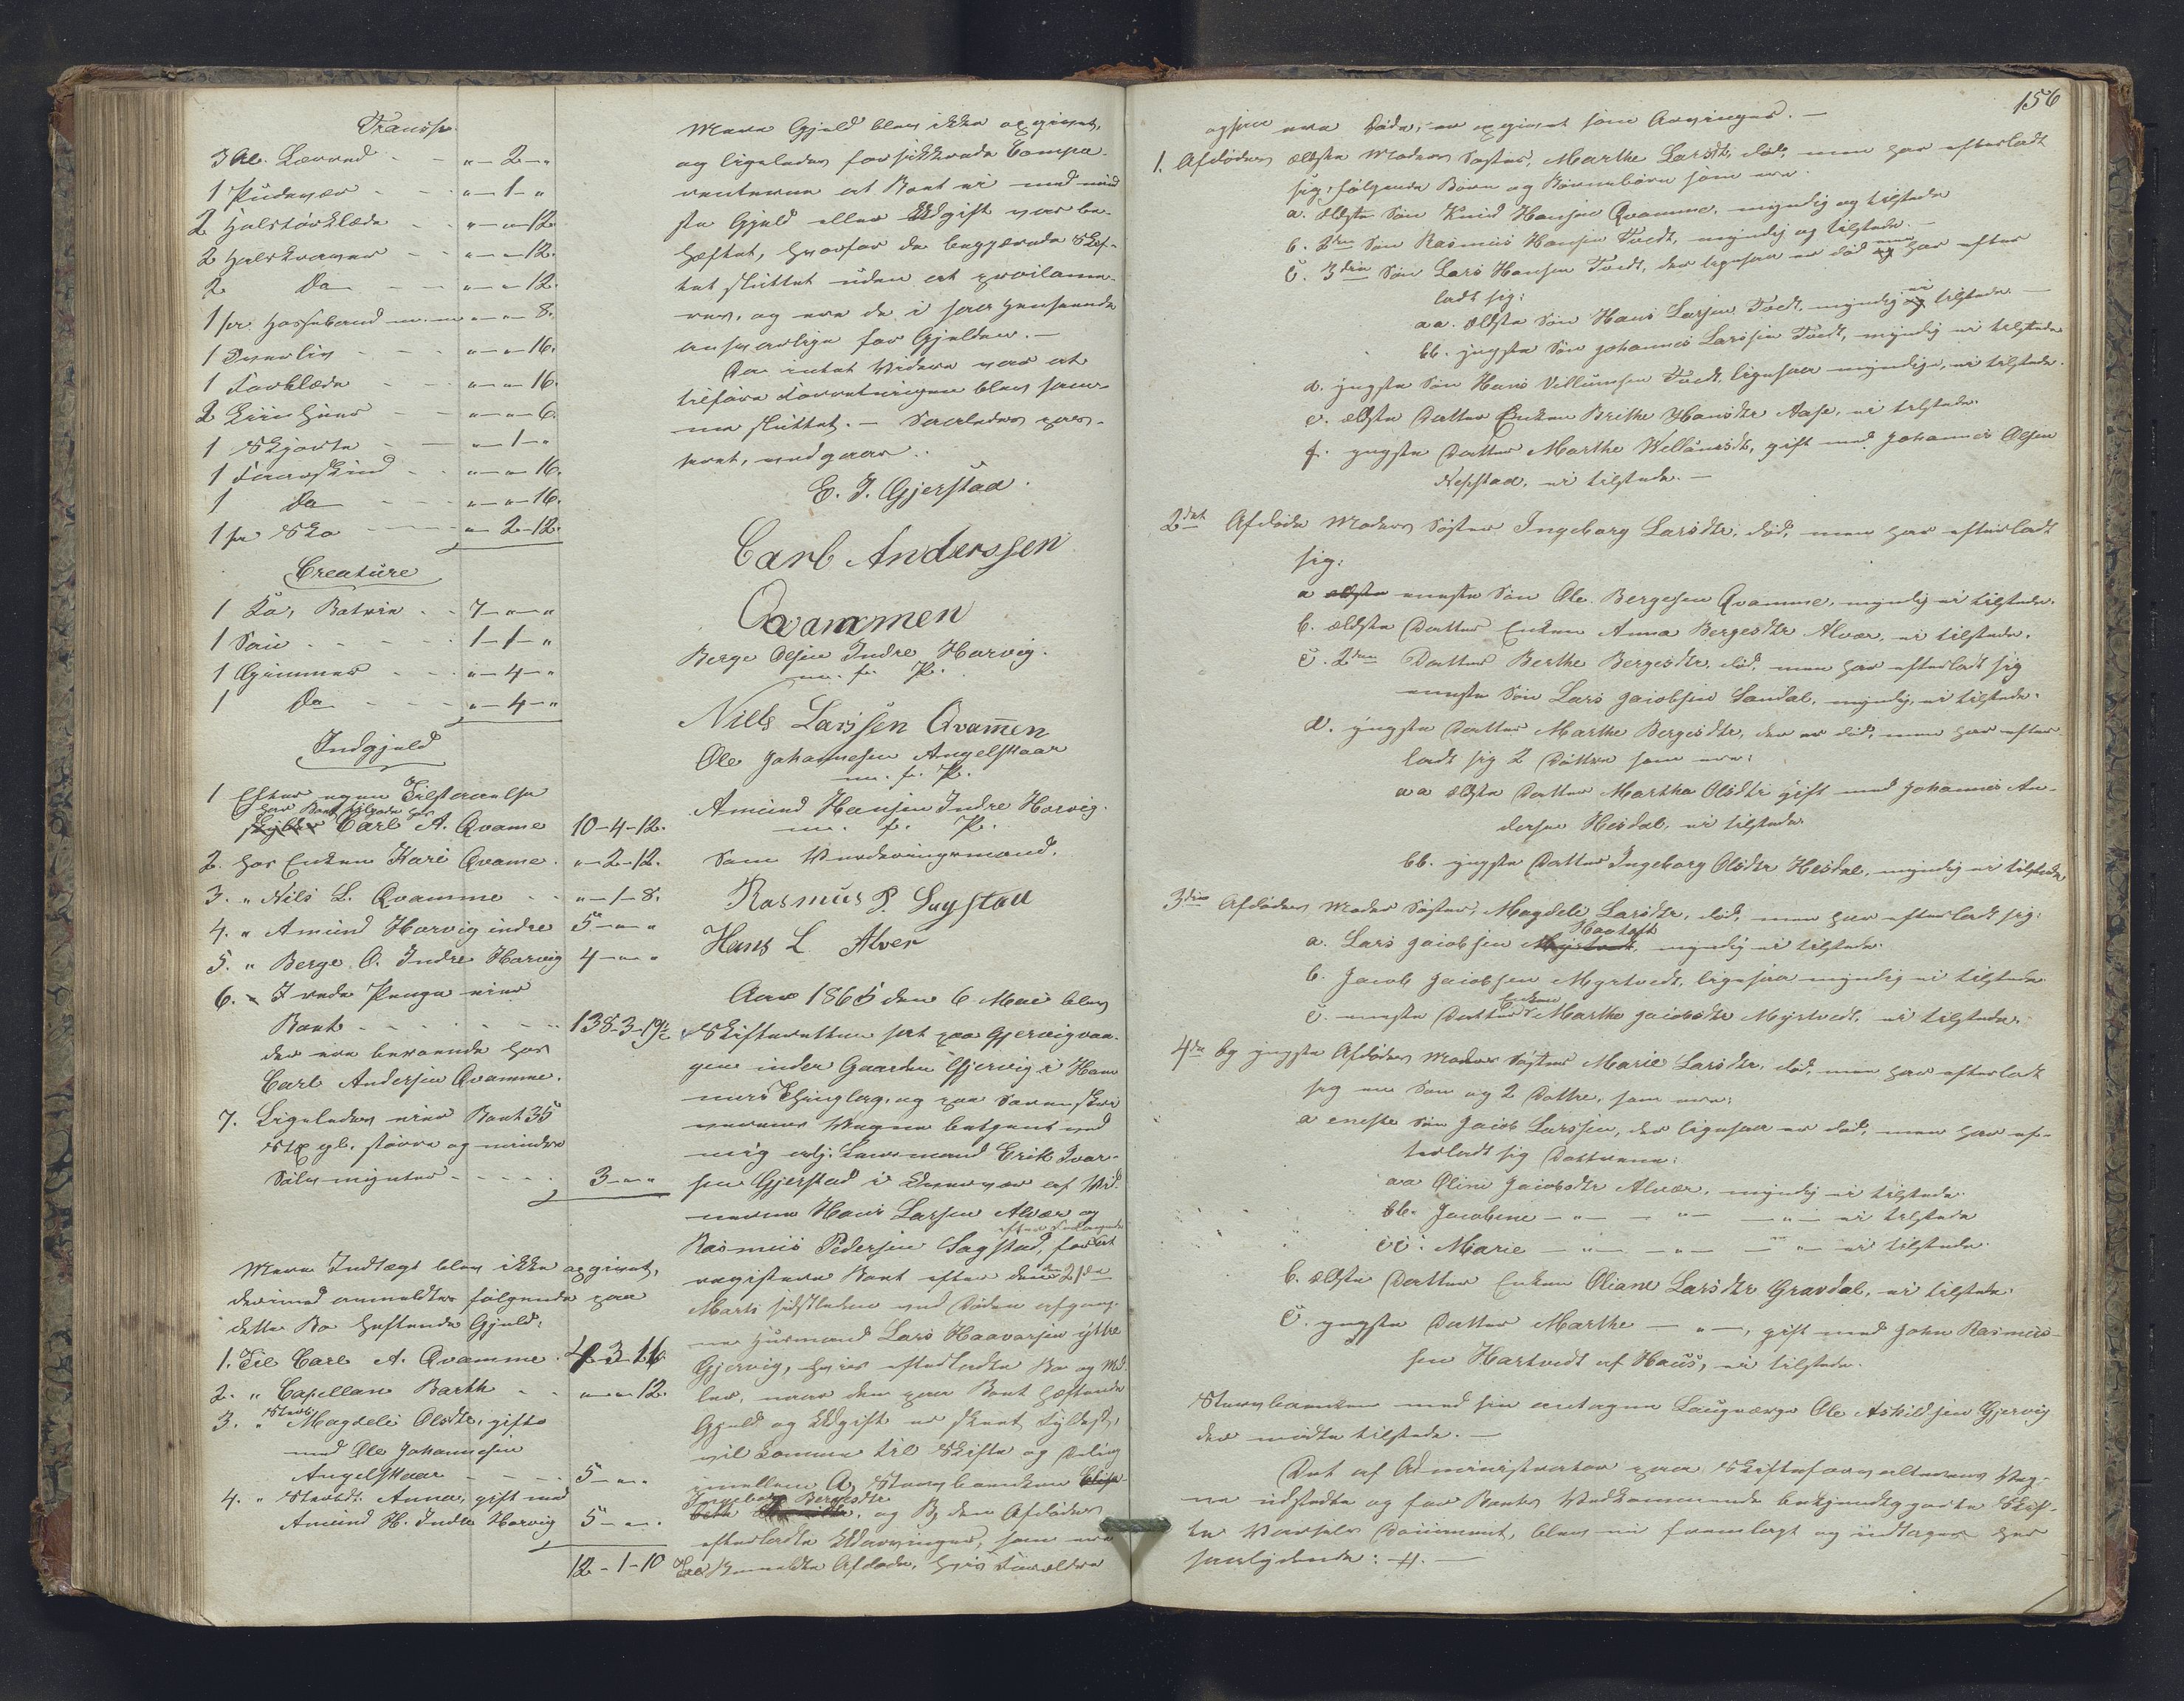 Transp.
3 Al. Lærred - - „-2-„
1 Pudevær - - - „-1-„
2 Halstørklæde - - „-„-12.
2 Halskraver - - „-„-12.
2 Do - - - „-„-12.
1 pr. Hosseband m.m. „-„-8.
1 Overliv - - - „-„-16.
1 Forklæde - - „-„-16.
2 Liinhuer - - „-„-6.
1 Skjorte - - „-1-„
1 Faareskind - - „-„-16.
1 Do - - - „-„-16.
1 pr Sko - - - „-2-12.
Creature
1 Ko, Batrin - - 7-„-„
1 Sau - - - - 1-1-„
1 Gimmer - - - „-4-„
1 Do - - - „-4-„
Indgjeld
1 Efter egen Tilstaaelse
har Boet tilgode hos
skylder Carl A. Qvame 10-4-12.
2. hos Enken Kari Qvame. „-2-12.
3. „ Nils L. Qvamme - - „-1-8.
4. „ Amund Horvig indre 5-„-„
5. „ Berge O. Indre Horvig 4-„-„
6. I rede Penge eier
Boet - - - - - - 138-3-19½
der ere beroende hos
Carl Andersen Qvamme.
7. Ligeledes eier Boet 35
Stk gl. større og mindre
Sølvmynter - - - - 3-„-„
Mere Indtægt blev ikke opgivet,
derimod anmeldtes følgende paa
dette Bo heftende Gjeld:
1. Til Carl A. Qvamme. 1-3-16.
2. „ Capellan Barth - - „-„-12.
3. „ Stedb. Magdeli Olsdtr, gift
med Ole Johannesen
Angelskaar - - - - 5-„-„
4. „ Steddt. Anna, gift med
Amund H. Indre Horvig 5-„-„
12-1-10
Mere Gjeld blev ikke opgivet,
og ligeledes forsikkrede Compa-
renterne at Boet ei med mind
ste Gjeld eller Udgift var be-
hæftet, hvorfor de begjærede Skif-
tet sluttet uden at proclame-
res, og ere de i saa Henseende
ansvarlige for Gjelden. -
Da intet Videre var at
tilføre Forretningen blev sam-
me sluttet. - Saaledes pas-
seret, vedgaar.
E. I. Gjerstad.
Carl Anderssen
Qvammen
Berge Olsen Indre Horvig.
m. f. P.
Niels Larssen Qvamen
Ole Johannesen Angelskaar
m. f. P.
Amund Hansen Indre Horvig.
m. f. P.
Som Vurderingsmænd.
Rasmus P. Sagstad
Hans L. Alver
Aar 1865 den 6 Mai blev
Skifteretten sat paa Gjervigvaa-
gen under Gaarden Gjervig i Ham
mers Thinglag, og paa Sorenskri
verens Vegne betjent ved
mig adj. Lensmand Erik Iver-
sen Gjerstad i Overvær af Vid-
nerne Hans Larsen Alvær og
Rasmus Pedersen Sagstad, for at
registere Boet efter den den 21de
Marts sidstleden ved Døden afgang-
ne Huusmand Lars Haavarsen ytre
Gjervig, hvis efterladte Bo og Mid
ler, naar den paa Boet heftende
Gjeld og Udgift er skeet Fyldest,
vil komme til Skifte og Deling
imellem A, Stervboenken Elisa-
Ingeborg Bergesdtr
beth, og B, den Afdødes
efterladte Udarvinger, som ere
Den anmeldte Afdøde, hvis Forældre
156
ogsaa ere Døde, er opgivet som Arvinger. -
1. Afdødes ældste Moders Søster, Marthe Larsdtr, død, men har efterladt
sig følgende Børn og Børnebørn som ere.
a. ældste Søn Knud Hansen Qvamme, myndig og tilstede
b. 2den Søn Rasmus Hansen Tvedt, myndig og tilstede. -
c. 3die Søn Lars Hansen Tvedt, der ligesaa er død og men har efter
ladt sig:
aa. ældste Søn Hans Larsen Tvedt, myndig og ei tilstede. -
bb. yngste Søn Johannes Larssen Tvedt, myndig ei tilstede
d. yngste Søn Hans Villumsen Tvedt, ligesaa myndige, ei tilstede.
e. ældste Datter Enken Brithe Hansdtr Aase, ei tilstede.
f. yngste Datter Marthe Wellumsdtr, gift med Johannes Olsen
Nepstad, ei tilstede. -
2det Afdøde Moders Søster Ingeborg Larsdtr, død, men har efterladt
sig:
a ældste eneste Søn Ole Bergesen Qvamme, myndig ei tilstede.
b. ældste Datter Enken Anna Bergesdtr Alvær, ei tilstede.
c. 2den Datter Berthe Bergesdtr, død, men har efterladt sig
eneste Søn Lars Jacobsen Sandal, myndig, ei tilstede.
d. yngste Datter Marthe Bergesdtr, der er død, men har efter
ladt sig 2 Døttre som ere:
aa ældste Datter Martha Olsdtr gift med Johannes An-
dersen Hesdal, ei tilstede
bb. yngste Datter Ingeborg Olsdtr Hesdal, myndig ei tilstede
3die Afdødes Moder Søster, Magdeli Larsdtr, død, men har efterladt sig:
a. Lars Jacobsen Myrtvedt Havtvedt, myndig ei tilstede.
b. Jacob Jacobsen Myrtvedt, ligesaa myndig ei tilstede.
c. eneste Datter Enken Marthe Jacobsdtr Myrtvedt, ei tilstede.
4de Og yngste Afdødes Moders Søster Marie Larsdtr, død, men har efterladt
sig en Søn og 2 Døttre, som ere:
a eneste Søn Jacob Larssen, der ligesaa er død, men har ef-
terladt sig Døttrene:
aa Oline Jacobsdtr Alvær, myndig ei tilstede
bb. Jacobine - „ - „ - „ - ei tilstede
cc. Marie - „ - „ - „ - ei tilstede.
b. ældste Datter Enken Oliane Larsdtr Gravdal, ei tilstede.
c. yngste Datter Marthe - „ -, gift med John Rasmus-
sen Hartvedt af Haus, ei tilstede.
Stervboenken med sin antagne Laugværge Ole Askildsen Gjervig
der mødte tilstede. -
Det af Administrator paa Skifteforvalterens Veg-
ne udstedte og for Boets Vedkommende bekjendtgjorte Skif-
te Varsels Document, blev nu fremlagt og indtages her
saalydende: #. -